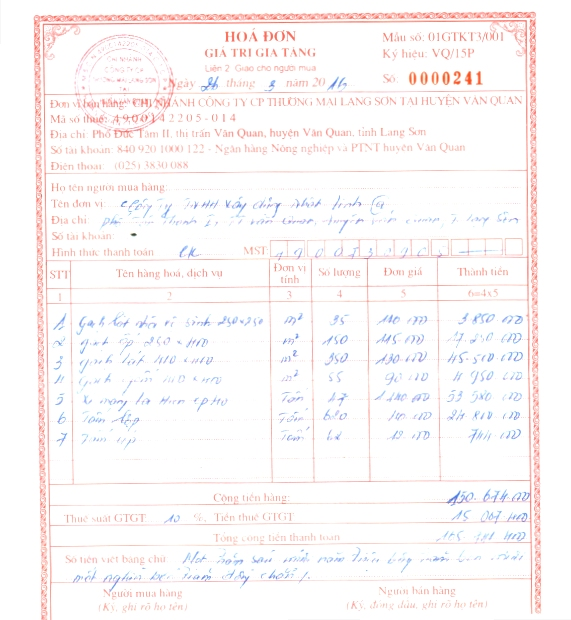 HOÁ ĐƠN
GIÁ TRỊ GIA TĂNG
Liên 2: Giao cho người mua
Ngày 26 tháng 3 năm 2016
Mẫu số: 01GTKT3/001
Ký hiệu: VQ/15P
Số: 0000241
Đơn vị bán hàng: CHI NHÁNH CÔNG TY CP THƯƠNG MẠI LẠNG SƠN TẠI HUYỆN VĂN QUAN
Mã số thuế: 4900142205-014
Địa chỉ: Phố Đức Tâm II, thị trấn Văn Quan, huyện Văn Quan, tỉnh Lạng Sơn
Số tài khoản: 840 920 1000 122 - Ngân hàng Nông nghiệp và PTNT huyện Văn Quan
Điện thoại: (025) 3830 088
Họ tên người mua hàng:
Tên đơn vị: Công ty TNHH Xây dựng
Địa chỉ:
Số tài khoản:
Hình thức thanh toán CK MST
STT Tên hàng hoá, dịch vụ Đơn vị tính Số lượng Đơn giá Thành tiền
1 2 3 4 5 6=4x5
1 Gạch lát 250x250 m² 35 110 000 3 850 000
2 gạch ốp 250 x 400 m² 150 115 000 17 250 000
3 gạch lát 400 x 400 m² 350 130 000 45 500 000
4 gạch 400 x 400 m² 55 90 000 4 950 000
5 Xi măng Tấn 47 1 140 000 53 580 000
6 Tấm lợp Tấm 620 40 000 24 800 000
7 Tấm úp Tấm 62 12 000 744 000
Cộng tiền hàng: 150 674 000
Thuế suất GTGT 10 %, Tiền thuế GTGT 15 067 400
Tổng cộng tiền thanh toán 165 741 400
Số tiền viết bằng chữ: Một trăm sáu mươi năm triệu bảy trăm bốn mươi
một nghìn bốn trăm đồng chẵn /.
Người mua hàng
(Ký, ghi rõ họ tên)
Người bán hàng
(Ký, đóng dấu, ghi rõ họ tên)